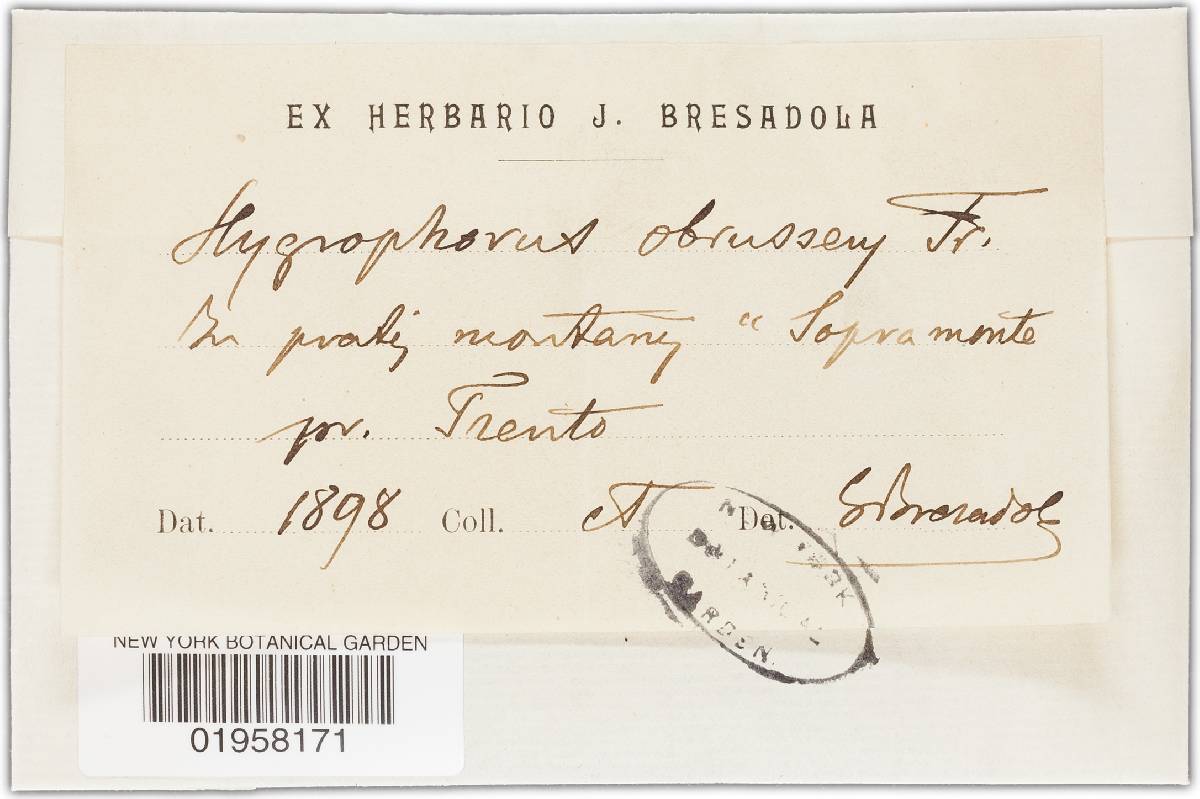 EX HERBARIO J. BRESADOLA
Hygrophorus obrusseus Fr.
In pratis montanis "Sopramonte
pr. Trento
Dat. 1898 Coll. Det. G Bresadola
NEW YORK
BOTANICAL
GARDEN
NEW YORK BOTANICAL GARDEN
01958171